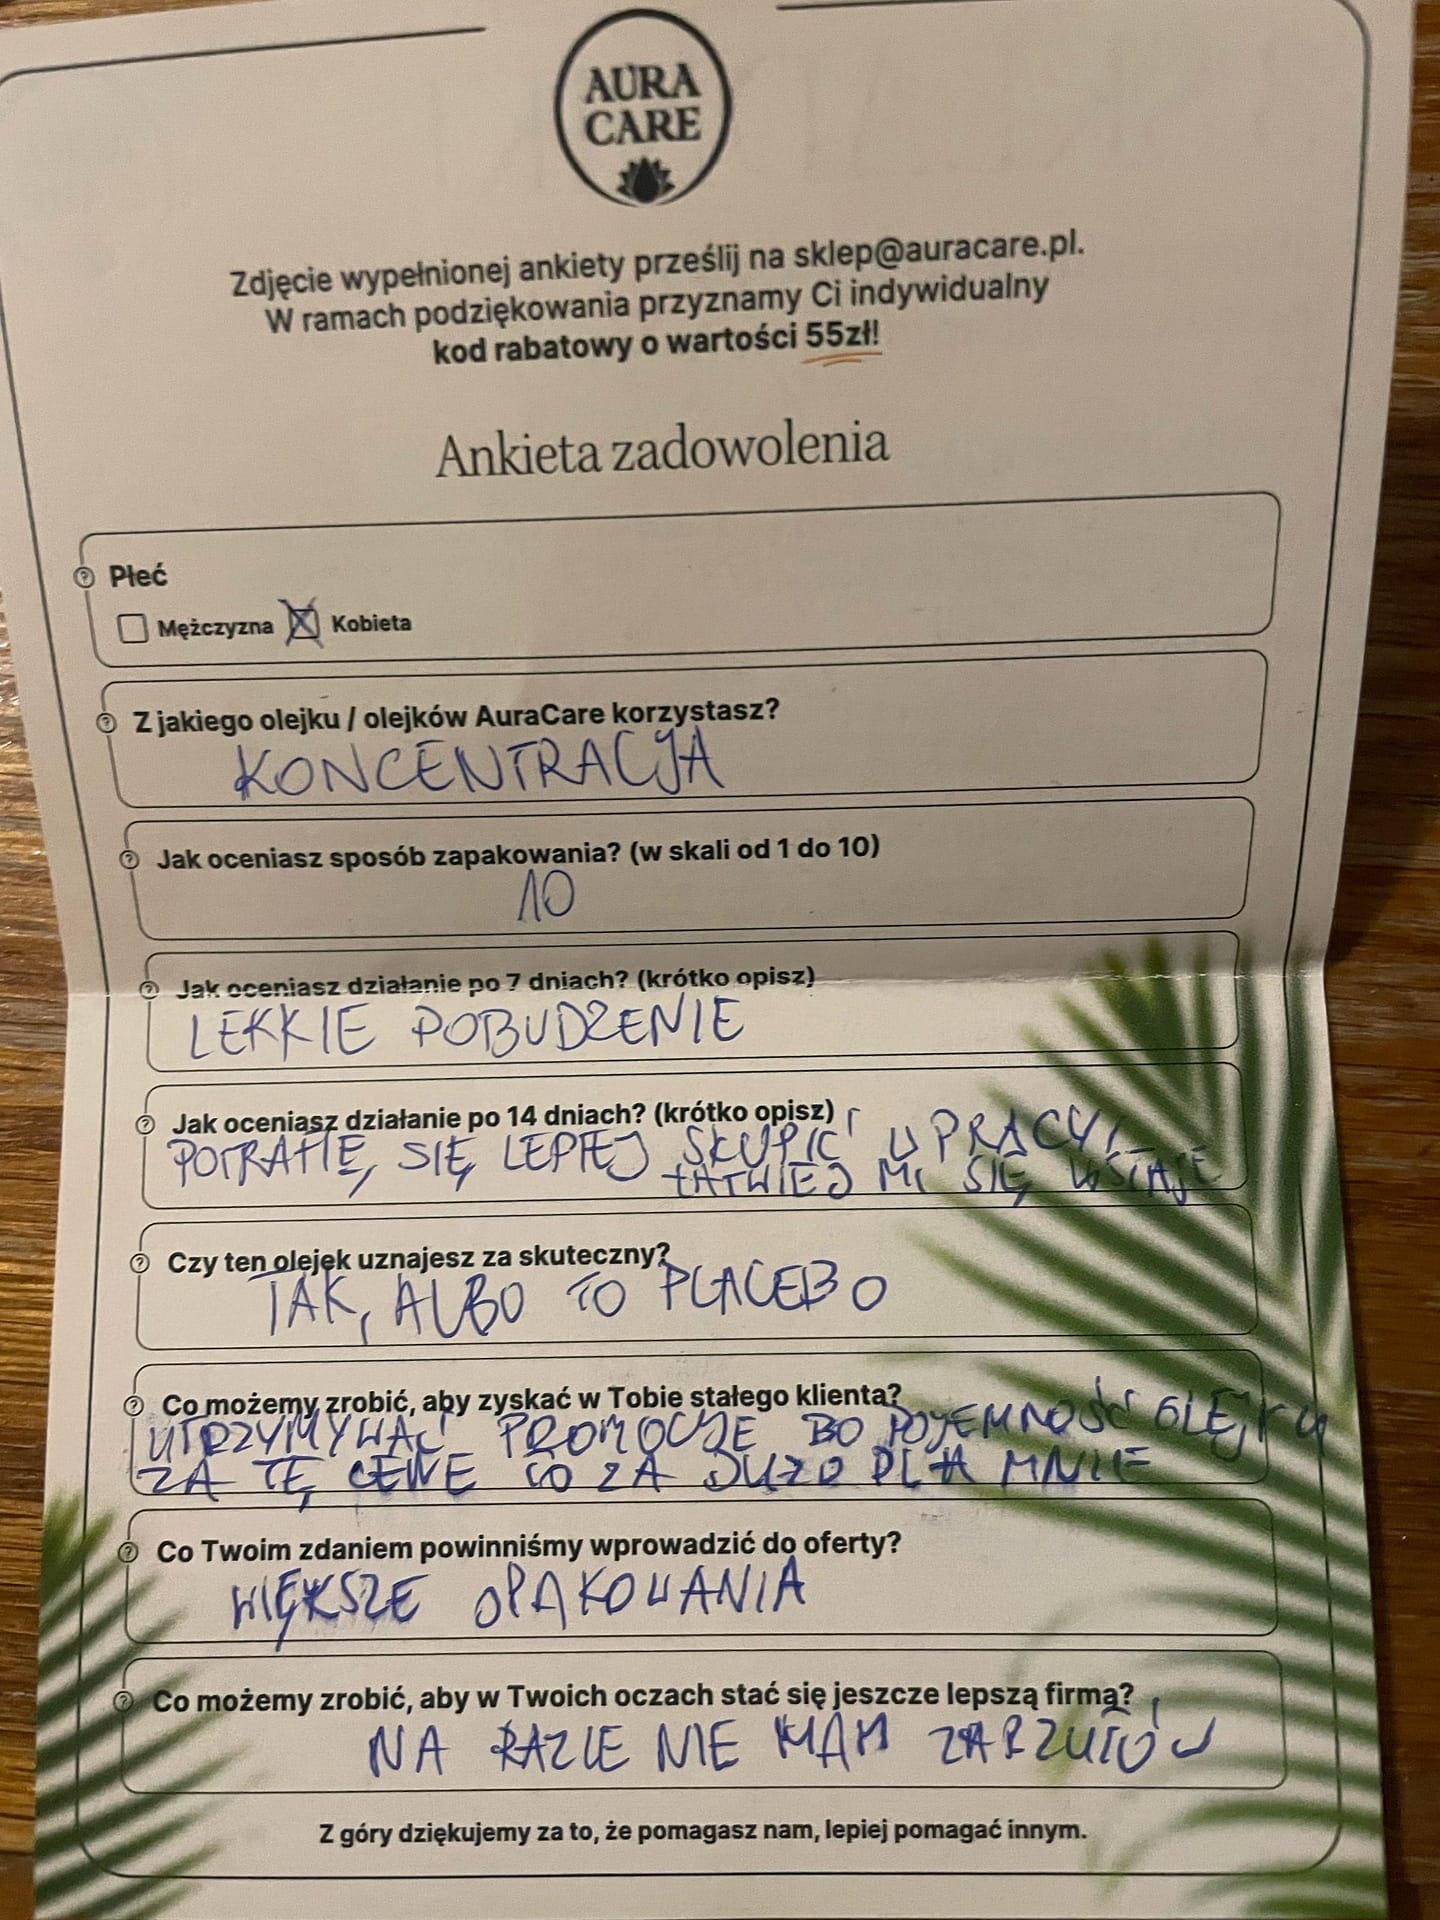 AURA
CARE
Zdjęcie wypełnionej ankiety prześlij na sklep@auracare.pl.
W ramach podziękowania przyznamy Ci indywidualny
kod rabatowy o wartości 55zł!
Ankieta zadowolenia
Płeć
Mężczyzna Kobieta
Z jakiego olejku / olejków AuraCare korzystasz?
KONCENTRACJA
Jak oceniasz sposób zapakowania? (w skali od 1 do 10)
10
Jak oceniasz działanie po 7 dniach? (krótko opisz)
LEKKIE POBUDZENIE
Jak oceniasz działanie po 14 dniach? (krótko opisz)
POTRAFIĘ SIĘ LEPIEJ SKUPIĆ W PRACY,
ŁATWIEJ MI SIĘ WSTAJE
Czy ten olejek uznajesz za skuteczny?
TAK, ALBO TO PLACEBO
Co możemy zrobić, aby zyskać w Tobie stałego klienta?
UTRZYMYWAĆ PROMOCJE BO POJEMNOŚĆ OLEJKU
ZA TĘ CENE TO ZA DUŻO DLA MNIE
Co Twoim zdaniem powinniśmy wprowadzić do oferty?
WIĘKSZE OPAKOWANIA
Co możemy zrobić, aby w Twoich oczach stać się jeszcze lepszą firmą?
NA RAZIE NIE MAM ZARZUTÓW
Z góry dziękujemy za to, że pomagasz nam, lepiej pomagać innym.